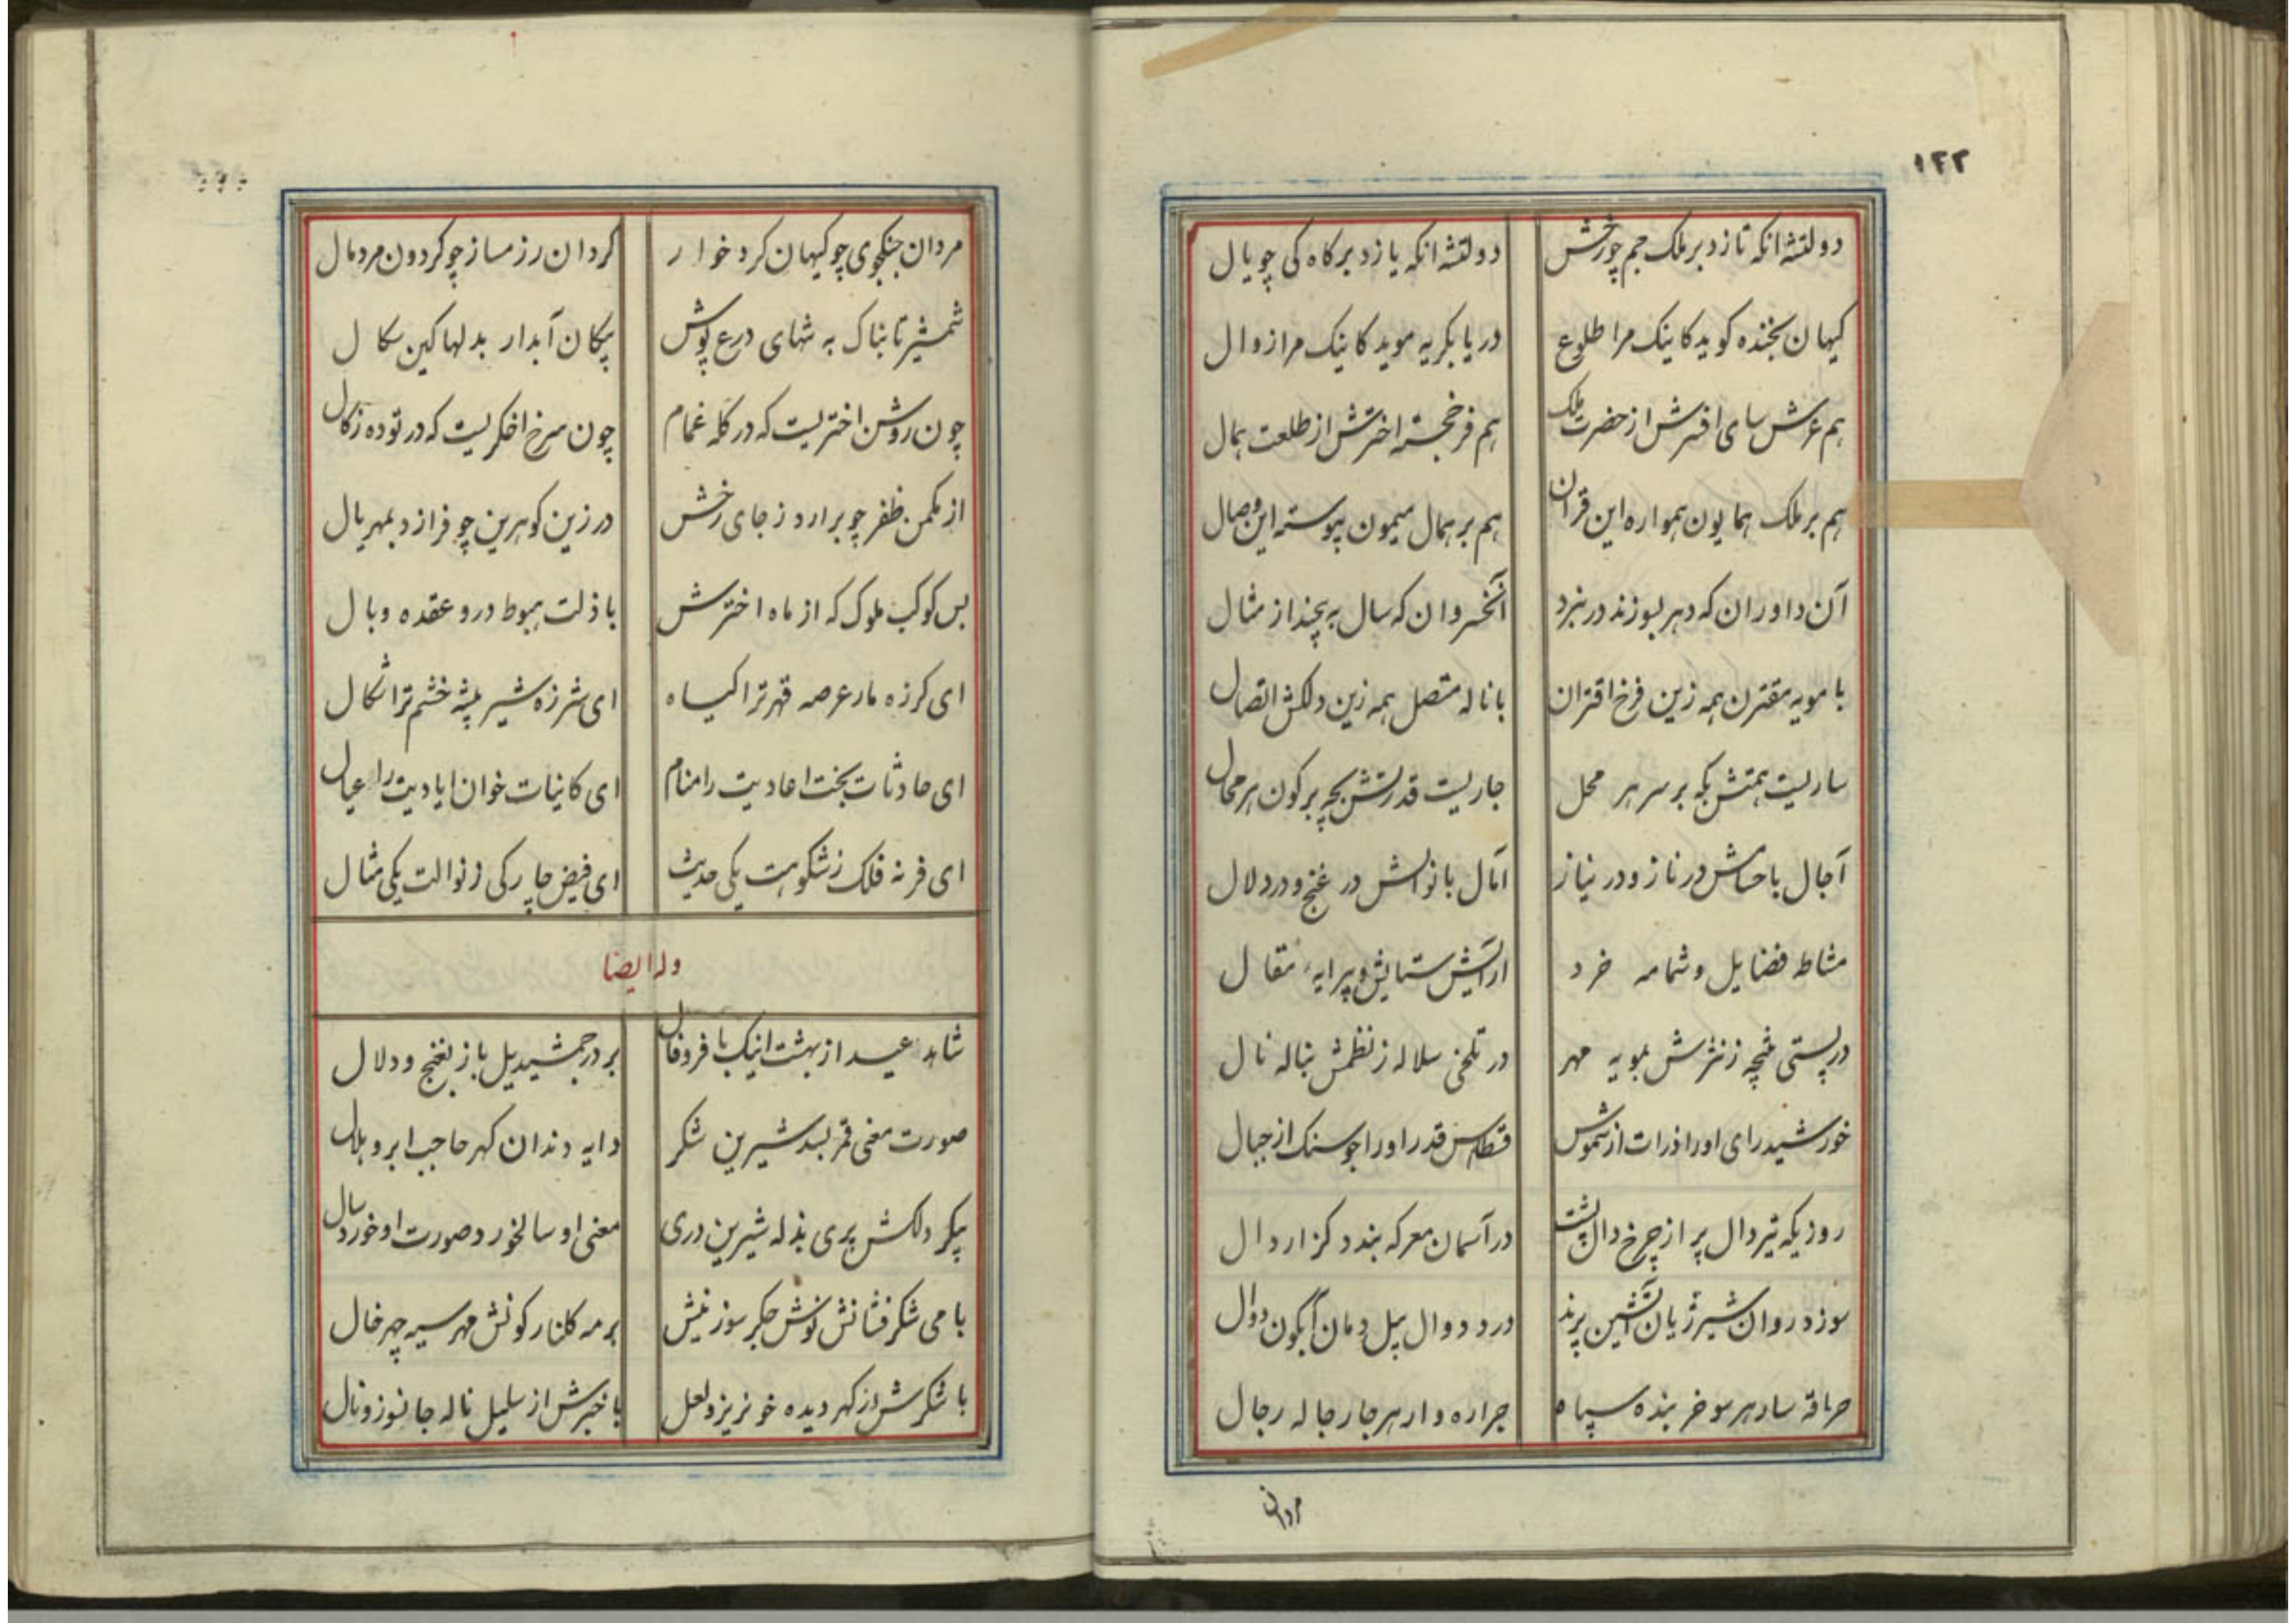 ۱۲۲
دولتشه انکه تازد بر ملک جم چو رخش
دولتشه انکه یازد بر کاه کی چو یال
کیهان بخنده کوید کاینک مرا طلوع
دریا بکریه موید کاینک مرا زوال
هم عرش سای افسرش از حضرت ملک
هم فر خجسته اخترش از طلعت همال
هم بر ملک همایون همواره این قران
هم بر همال میمون پیوسته این وصال
آن داوران که دهر بسوزند در نبرد
آنخسروان که سال به پیچند از مثال
با مویه مقترن همه زین فرخ اقتران
با ناله متصل همه زین دلکش اتصال
ساریست همتش بکه بر سر هر محل
جاریست قدرتش بچه بر کون هر محال
آجال با حسامش در ناز و در نیاز
آمال با نوالش در غنج و در دلال
مشاطه فضایل و شمامه خرد
ارایش ستایش و پیرایه مقال
در پستی غنچه ز نثرش بمویه مهر
در تلخی سلاله ز نظمش بناله نال
خورشید رای اورا ذرات از شموس
قسطاس قدر اورا جو سنک از جبال
روزیکه تیر دال پر از چرخ دال پشت
در آسمان معرکه بندد کزار دال
سوزد روان شیر ژیان آتشین پرند
درد دوال پیل دمان آبگون دوال
حراقه سار هر سو خربنده سپاه
جراره وار هر جا رجاله رجال
مردان
مردان جنکجوی چو کیهان کرد خوار
کردان رزمساز چو کردون مرد مال
شمشیر تابناک به تنهای درع پوش
پیکان آبدار بدلها کین سکال
چون روشن اختریست که در کله غمام
چون سرخ اخکریست که در توده زکال
از مکمن ظفر چو برارد ز جای رخش
در زین کوهرین چو فرازد بمهر یال
بس کوکب ملوک که از ماه اخترش
با ذلت هبوط درو عقده وبال
ای کرزه مار عرصه قهر ترا کیاه
ای شرزه شیر بیشه خشم ترا شکال
ای حادثات بخت اعادیت را منام
ای کاینات خوان ایادیت را عیال
ای فر نه فلک ز شکوهت یکی حدیث
ای فیض چار رکی ز نوالت یکی مثال
وله ایضا
شاهد عید از بهشت اینک با فر و فال
بر در جمشید یل باز بغنج و دلال
صورت معنی قمر بسد شیرین شکر
دایه دندان کهر حاجب ابرو هلال
پیکر دلکش پری بذله شیرین دری
معنی او سالخورد و صورت او خورد سال
با می شکر فشانش نوش جکر سوز نیش
بر مه کلنار کونش مهر سیه چهر خال
با شکرش از کهر دیده خونریز و لعل
با خبرش از سلیل ناله جانسوز و نال